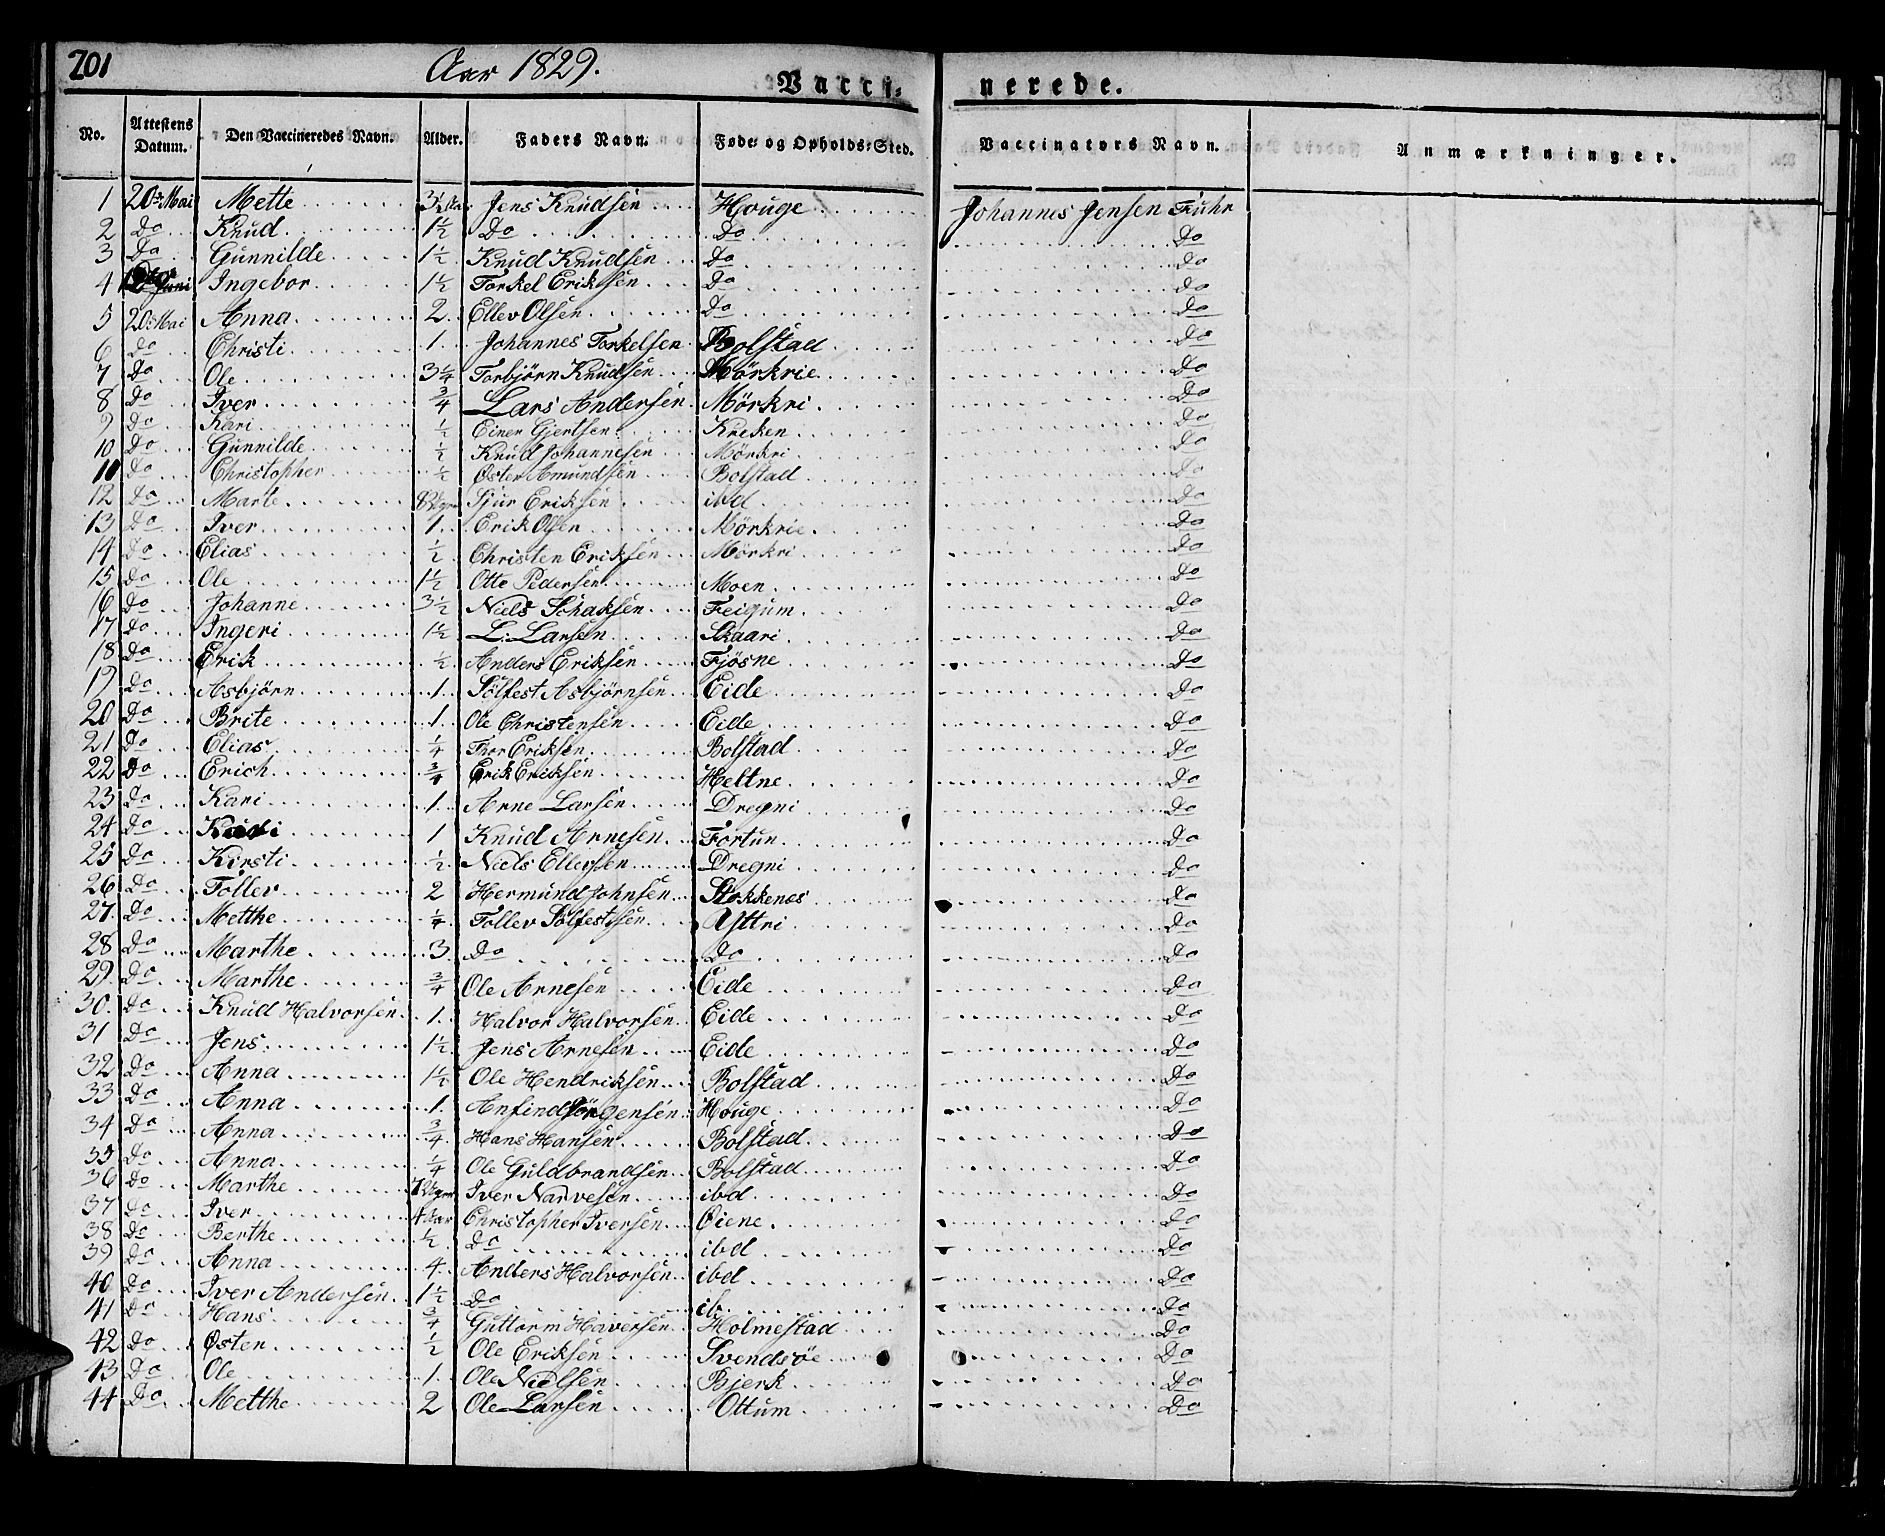 201 Aar 1829.
Vacci= nerede.
No. Attestens Datum. Den Vaccineredes Navn. Alder. Faders Navn. Føde= og Opholds=Sted. Vaccinators Navn. Anmærkninger.
1 20de Mai Mette 3½ Aar Jens Knudsen Houge Johannes Jensen Fuhr
2 Do Knud 1½ Do Do Do
3 Do Gunnilde 1½ Knud Knudsen Do Do
4 Juni Ingebor 1½ Torkel Eriksen Do Do
5 20 Mai Anna 2 Ellev Olsen Do Do
6 Do Christi 1 Johannes Torkelsen Bolstad Do
7 Do Ole 3¼ Torbjörn Knudsen Mörkrie Do
8 Do Iver ¾ Lars Andersen Mörkri Do
9 Do Kari ½ Einer Gjertsen Kreken Do
10 Do Gunnilde ½ Knud Johannesen Mörkri Do
11 Do Christopher ½ Øster Amundsen Bolstad Do
12 Do Marte Sjur Eriksen ibd Do
13 Do Iver 1 Erik Olsen Mörkrie Do
14 Do Elias ½ Christen Eriksen Mörkri Do
15 Do Ole 1½ Otte Pedersen Moen Do
16 Do Johanne 3½ Niels Schaksen Feigum Do
17 Do Ingeri 1½ L. Larsen Skaari Do
18 Do Erik ½ Anders Eriksen Fjösne Do
19 Do Asbjörn 1 Sölfest Asbjörnsen Eide Do
20 Do Brite 1 Ole Christensen Eide Do
21 Do Elias ¼ Thor Eriksen Bolstad Do
22 Do Erich ¾ Erik Eriksen Heltne Do
23 Do Kari 1 Arne Larsen Dregni Do
24 Do 1 Knud Arnesen Fortun Do
25 Do Kirsti ½ Niels Ellevsen Dregni Do
26 Do Tollev 2 Hermund Johnsen Stokkenes Do
27 Do Metthe ¼ Tollev Sölfestsen Do
28 Do Marthe 3 Do Do Do
29 Do Marthe ¾ Ole Arnesen Eide Do
30. Do Knud Halvorsen 1 Halvor Halvorsen Eide Do
31 Do Jens 1½ Jens Arnesen Eide Do
32 Do Anna 1½ Ole Hendriksen Bolstad Do
33 Do Anna 1 Anfind Jörgensen Houge Do
34 Do Anna ¾ Hans Hansen Bolstad Do
35 Do Anna ¼ Ole Guldbrandsen Bolstad Do
36 Do Marthe Iver Narvesen ibd Do
37 Do Iver 4 Aar Christopher Iversen Øiene Do
38 Do Berthe ½ Do ibd Do
39 Do Anna 4 Anders Halvorsen ibd Do
40 Do Iver Andersen 1½ Do ib. Do
41 Do Hans ¾ Guttorm Haversen Holmestad Do
42 Do Østen ½ Ole Eriksen Svendsøe Do
43 Do Ole 1 Ole Nielsen Bjerk Do
44 Do Metthe 2 Ole Larsen Ottum Do